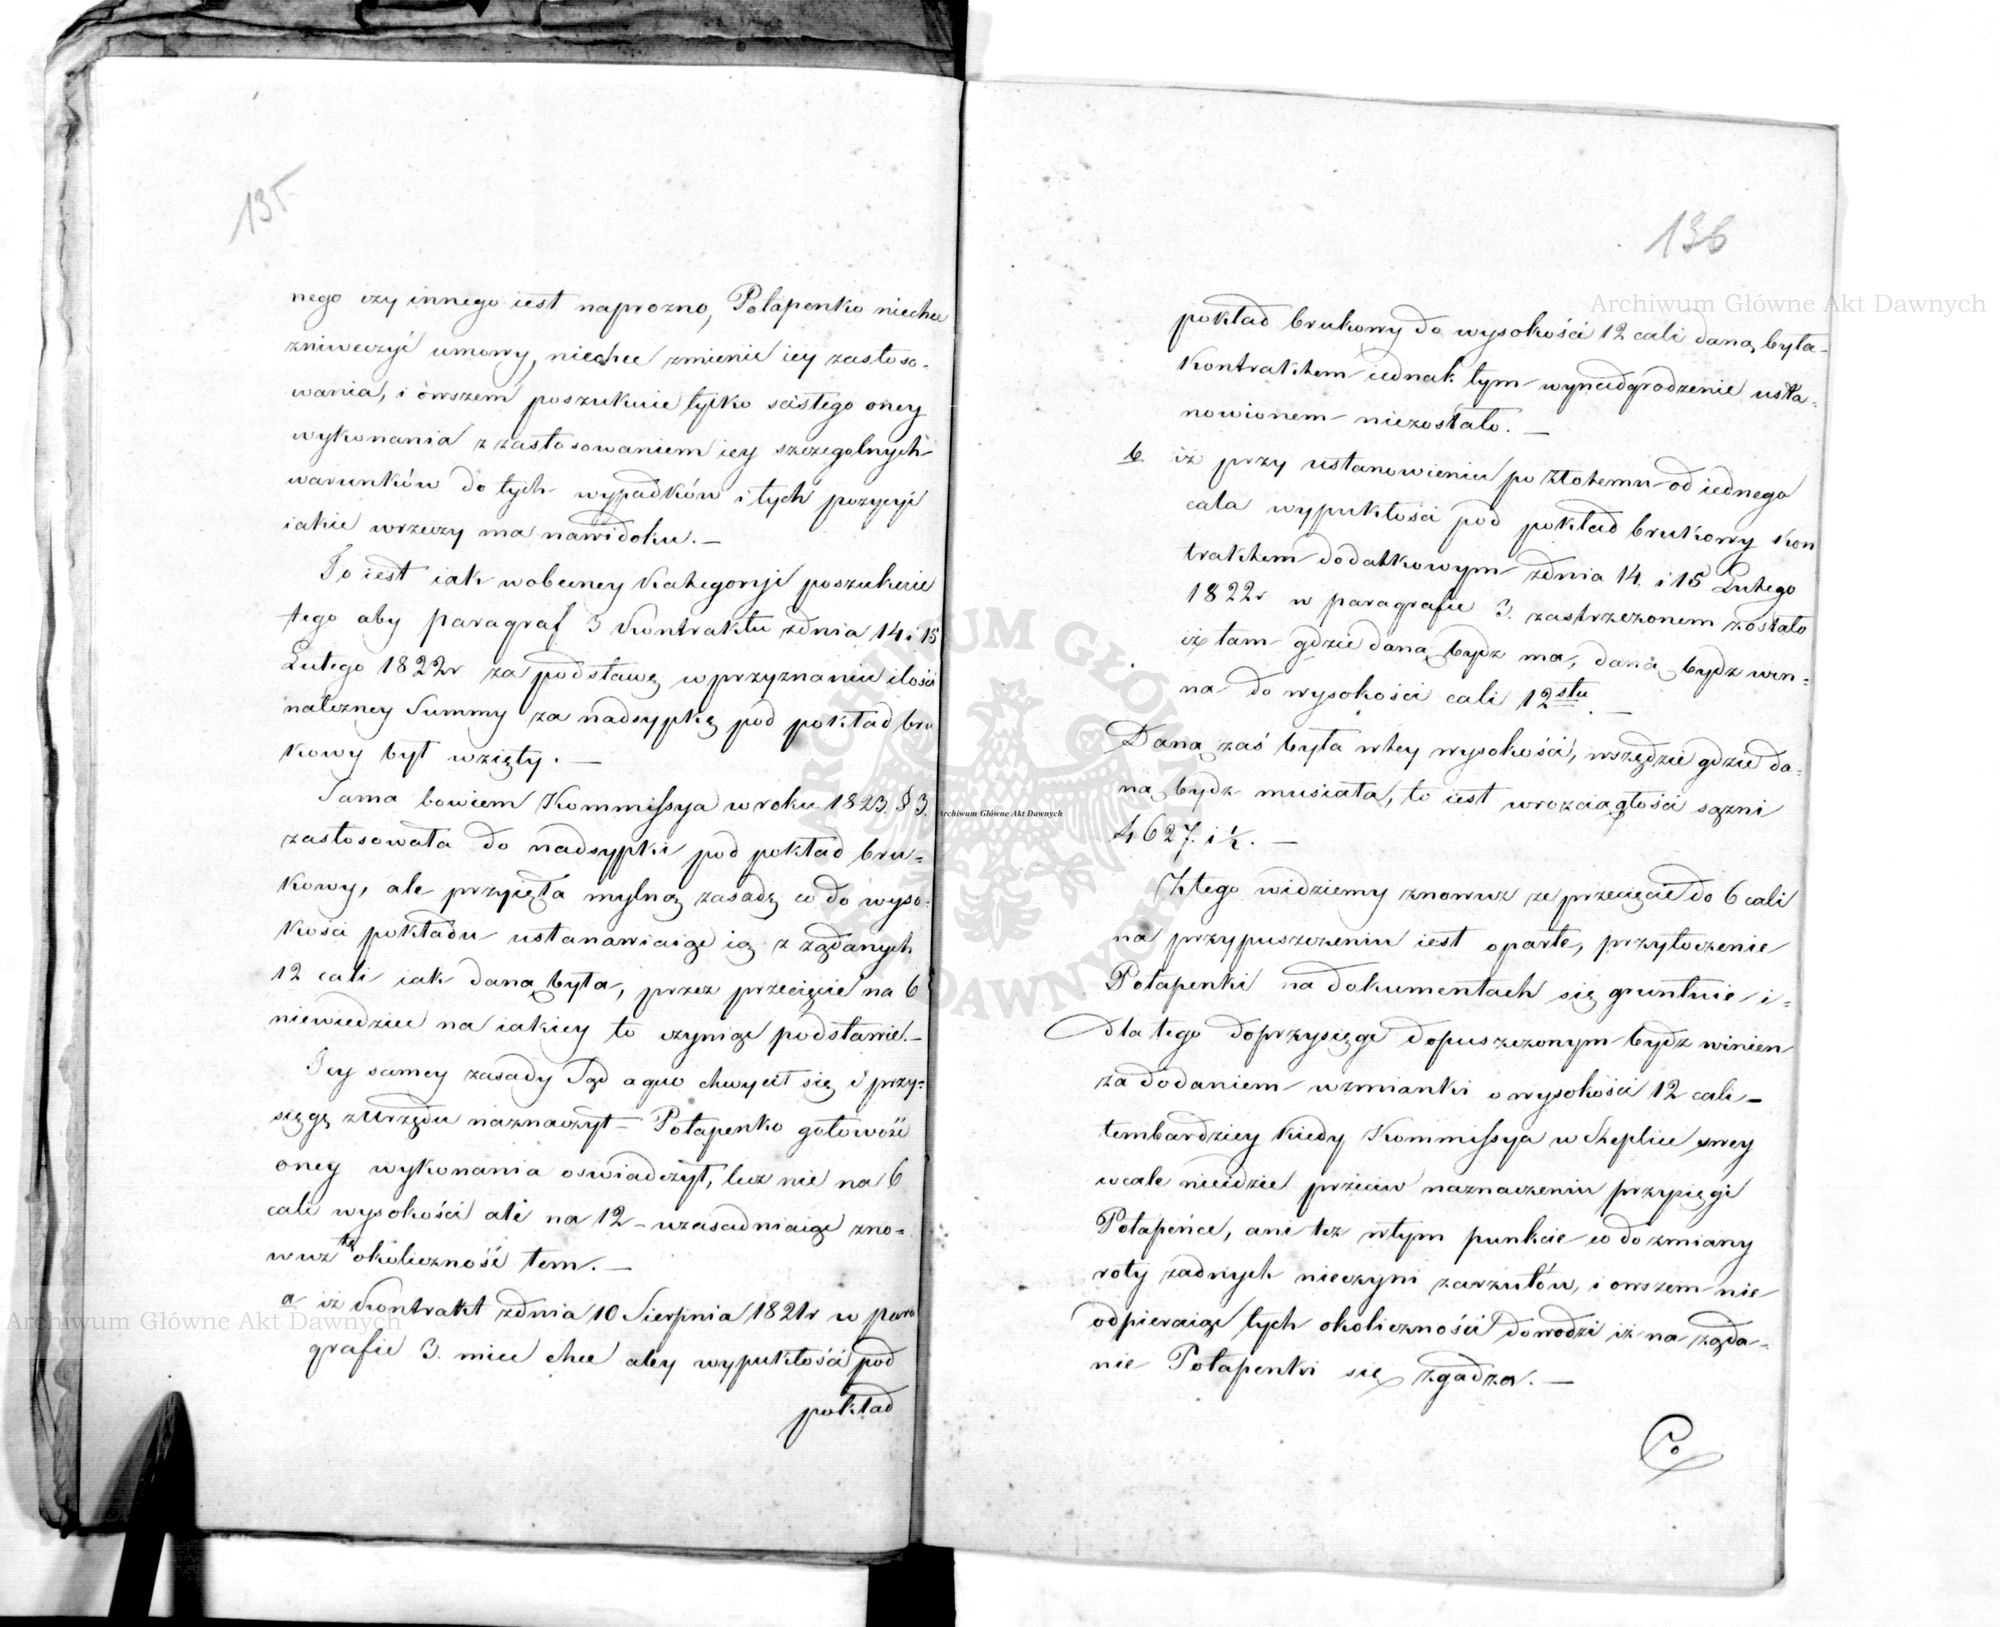 135
nego czy innego iest naprozno, Potapenko niechce
zniweczyć umowy, niechce zmienic iey zastoso-
wania, i owszem poszukuie tylko scisłego oney
wykonania z zastosowaniem iey szczegolnych
warunków do tych wypadków i tych pozycyi
iakie wrzeczy ma nawidoku. —
To iest iak wobecney Kategoryi poszukuie
tego aby paragraf 3 Kontraktu zdnia 14 i 15
Lutego 1822r za podstawę w przyznaniu ilości
należney Summy za nadsypkę pod pokład bru
kowy był wzięty. —
Sama bowiem Kommissya w roku 1823. § 3.
zastosowała do nadsypki pod pokład bru-
kowy, ale przyięła mylną zasadę co do wyso-
kości pokładu ustanawiaiąc ią z żądanych
12 cali iak daną była, przez przecięcie na 6
niewiedziec na iakiey to czyniąc podstawie. —
Tey samey zasady Sąd a quo chwycił się i przy-
sięgę z Urzędu naznaczył — Potapenko gotowość
oney wykonania oswiadczył, lecz nie na 6
cali wysokości ale na 12 — uzasadniaiąc zno-
wuz tę okoliczność tem. —
a iż Kontrakt zdnia 10 Sierpnia 1821r w para
grafie 3. miec chce aby wypukłość pod
pokład
136
pokład brukowy do wysokości 12 cali daną była
Kontraktem iednak tym wynadgrodzenie usta-
nowionem niezostało. —
b iż przy ustanowieniu po Złotemu od iednego
cala wypukłości pod pokład brukowy Kon
traktem dodatkowym zdnia 14. i 15 Lutego
1822r w paragrafie 3. zastrzeżonem zostało
iż tam gdzie daną bydz ma, daną bydz win-
na do wysokości cali 12stu. —
Daną zaś była wtey wysokości, wszędzie gdzie da-
ną bydz musiała, to iest wrozciągłości sążni
4627. i ½. —
Ztego widziemy znowuz ze przecięcie do 6 cali
na przypuszczeniu iest oparte, przytoczenie
Potapenki na dokumentach się gruntuie i
dla tego doprzysięgi dopuszczonym bydz winien
za dodaniem wzmianki o wysokości 12 cali —
tembardziey kiedy Kommissya w Replice swey
wcale nieidzie przeciw naznaczeniu przysięgi
Potapeńce, ani tez wtym punkcie co do zmiany
roty zadnych nieczyni zarzutów, i owszem nie
odpieraiąc tych okoliczności dowodzi iż na żąda-
nie Potapenki się zgadza. —
Co
Archiwum Główne Akt Dawnych
Archiwum Główne Akt Dawnych
Archiwum Główne Akt Dawnych
ARCHIWUM GŁÓWNE AKT DAWNYCH